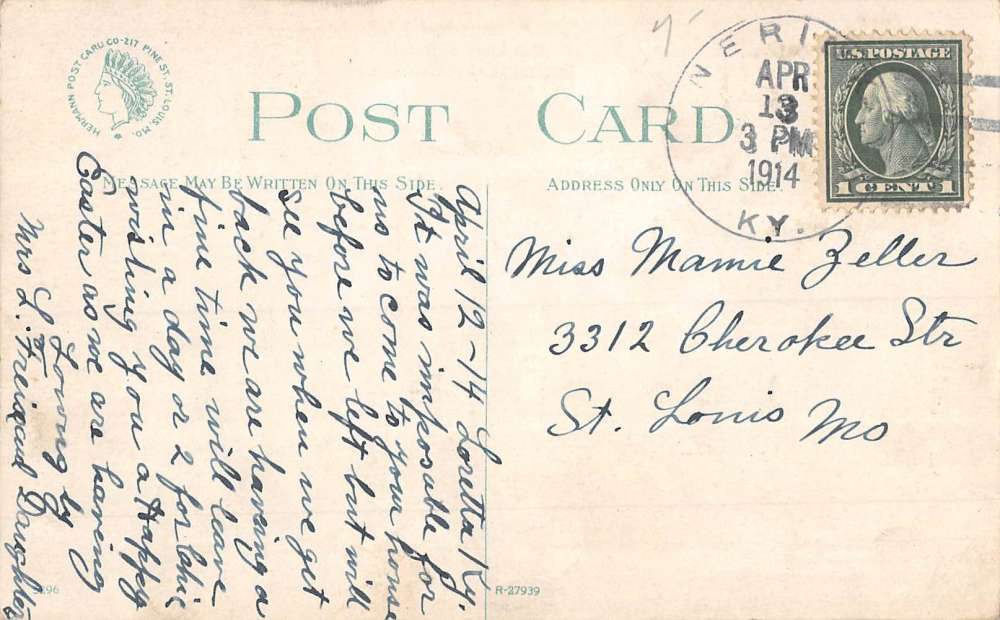 HERMANN POST CARD CO-217 PINE ST. ST. LOUIS, MO.
POST CARD
MESSAGE MAY BE WRITTEN ON THIS SIDE.
ADDRESS ONLY ON THIS SIDE
NERI
APR
13
3 PM
1914
KY.
U.S. POSTAGE
1 CENT 1
April 12-14 Loretta Ky.
It was imposable for
us to come to your house
before we left but will
see you when we get
back we are haveing a
fine time will leave
in a day or 2 for Chic
wishing you a Happy
Easter as we are haveing
Loving by
Mrs L. and Daughter
Miss Mamie Zeller
3312 Cherokee Str
St. Louis Mo
R-27939